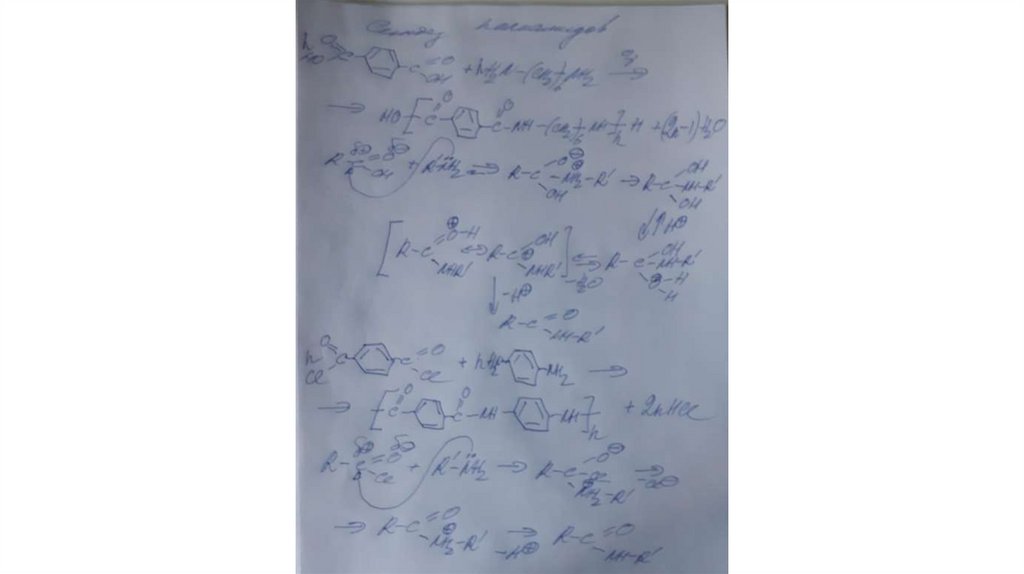 Синтез полиамидов
n HO O C C O OH + n H₂N-(CH₂)₆-NH₂ →
→ HO [ C O C O -NH-(CH₂)₆-NH ]n H + (2n-1) H₂O
R-C δ⊕ =O δ⊖ OH + R'-N̈H₂ ⇌ R-C O⊖ NH₂⊕-R' OH → R-C OH NH-R' OH
↓↑ H⊕
[ R-C =O⊕-H NHR' ↔ R-C⊕ OH NHR' ] ⇌ -H₂O R-C OH NH-R' O⊕-H H
↓ -H⊕
R-C =O NH-R'
n O C Cl C =O Cl + n H₂N NH₂ →
→ [ C O C O -NH NH ]n + 2nHCl
R-C δ⊕ =O δ⊖ Cl + R'-N̈H₂ → R-C O⊖ Cl NH₂⊕-R' → -Cl⊖
→ R-C =O NH₂⊕-R' → -H⊕ R-C =O NH-R'